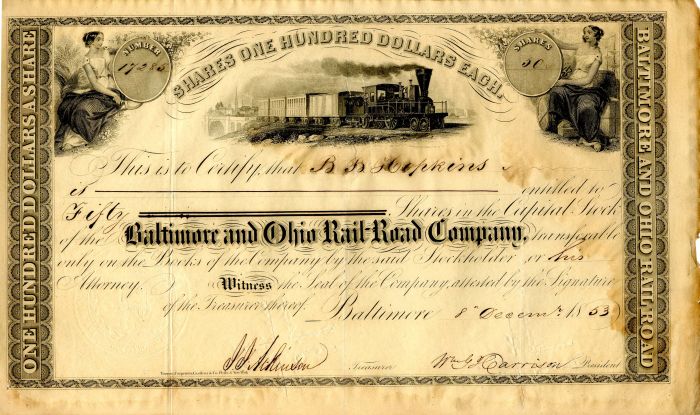 NUMBER
17285
SHARES ONE HUNDRED DOLLARS EACH.
SHARES
50
ONE HUNDRED DOLLARS A SHARE
BALTIMORE AND OHIO RAIL-ROAD
This is to Certify, that B B Hopkins
is entitled to
Fifty Shares in the Capital Stock
of the Baltimore and Ohio Rail-Road Company, transferable
only on the Books of the Company by the said Stockholder or his
Attorney. Witness the Seal of the Company, attested by the Signature
of the Treasurer thereof. Baltimore 8th Decemr 1853
J. I. Atkinson Treasurer Wm G Harrison President